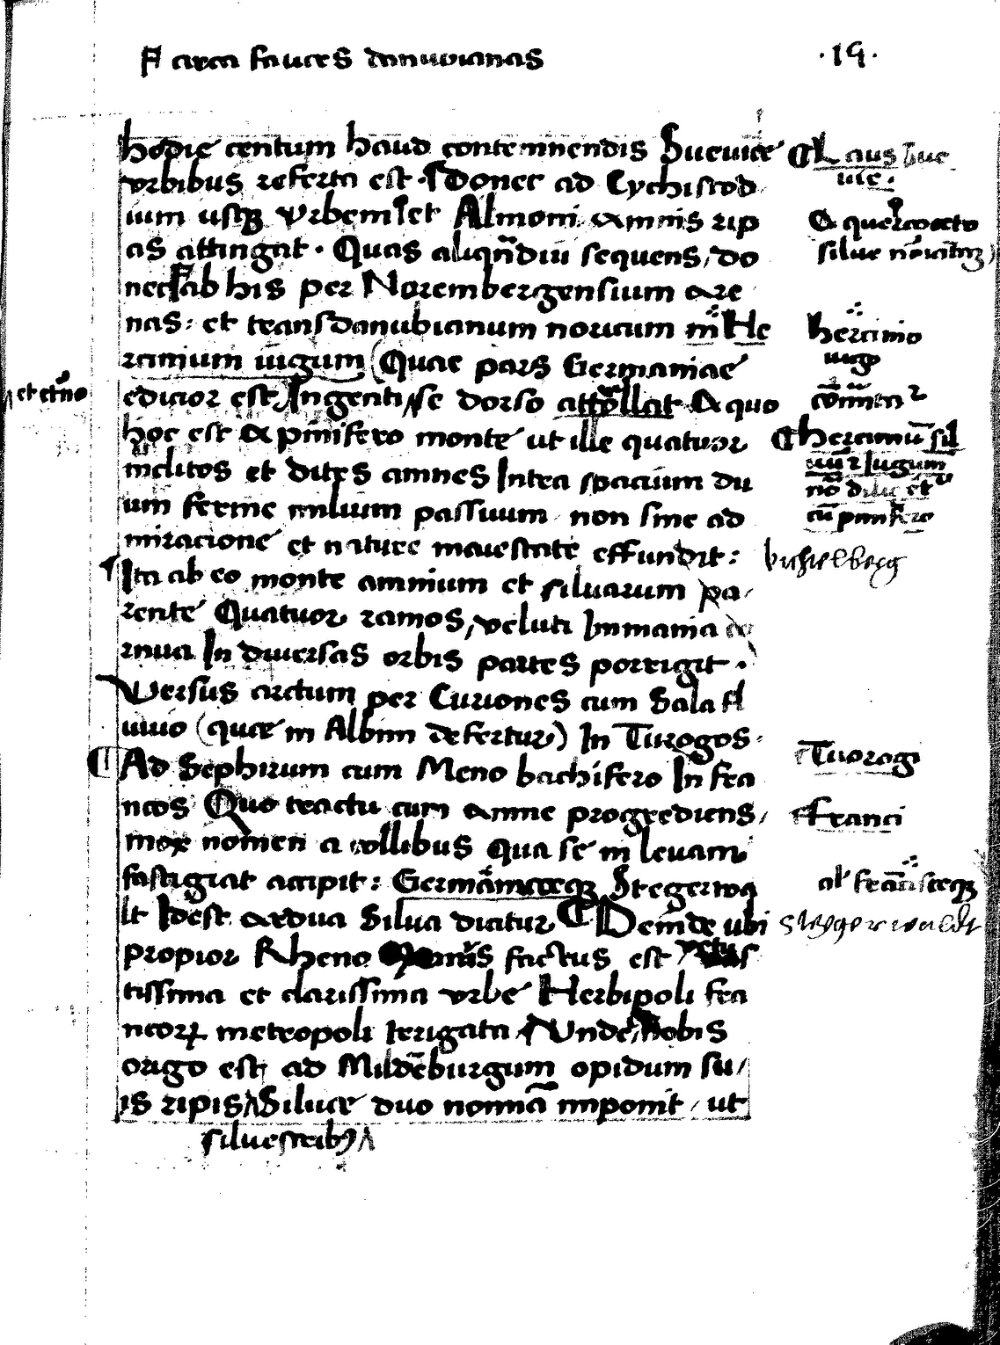 circa fauces danuvianas
·19·
hodie centum haud contemnendis Sueviae
vrbibus referta est. Donec ad Lychistod
ium usque vrbem et Almoni amnis rip
as attingat. Quas aliqndiu sequens, do
nec ab his per Norembergensium are
nas: et transdanubianum noricum in He
rcinium iugum (Quae pars Germaniae
edicior est Ingenti se dorso attollat & quo
hoc est & pinifero monte ut ille quatuor
inclitos et dites amnes Intra spacium du
um ferme milium passuum non sine ad
miracione et nature maiestate effundit:
Ita ab eo monte amnium et silvarum pa,
rente Quatuor ramos, veluti Immania co
rnua In diversas orbis partes porrigit.
Versus arctum per Curiones cum Sala fl
uvio (quae in Albim defertur) In Turogos.
Ad Sephirum cum Meno bachifero In fra
ncos Quo tractu cum amne progrediens,
mox nomen a collibus qua se in levam
fastigiat accipit: Stegerwa
lt Idest ardua Silva dicitur Deinde ubi
propior Rheno factus est
tissima et clarissima vrbe Herbipoli fra
ncorum metropoli Irrigata Unde nobis
origo est, ad Mildeburgum opidum su,
is ripis Silvae duo nomina imponit, ut
silvestribus
Laus Sue
viae.
silve
hercinio
iugo
hercinium sil
iugum
cum pinifero
vichtelberg
Turogi
Franci
al'
Steygerwaldt